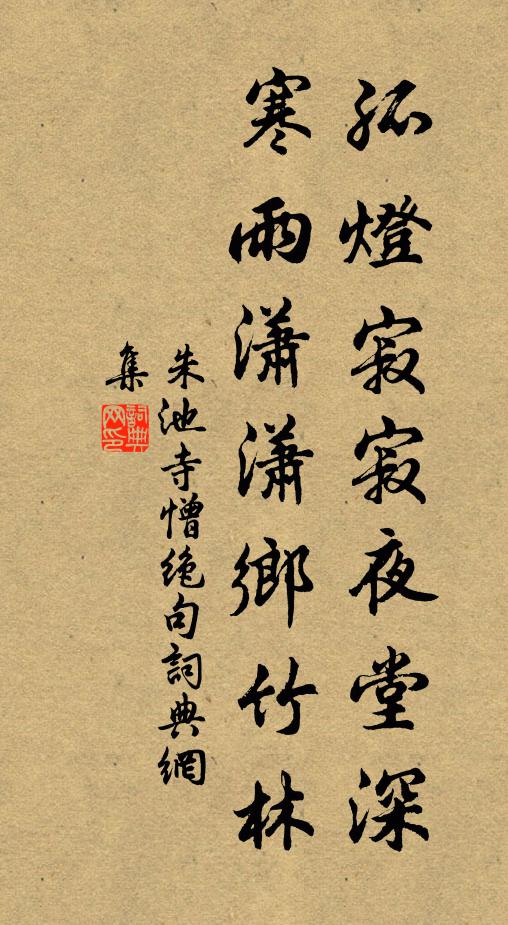 孤燈寂寂夜堂深
寒雨瀟瀟鄉竹林
朱池寺憎絶句詞典網
集
詞典网印